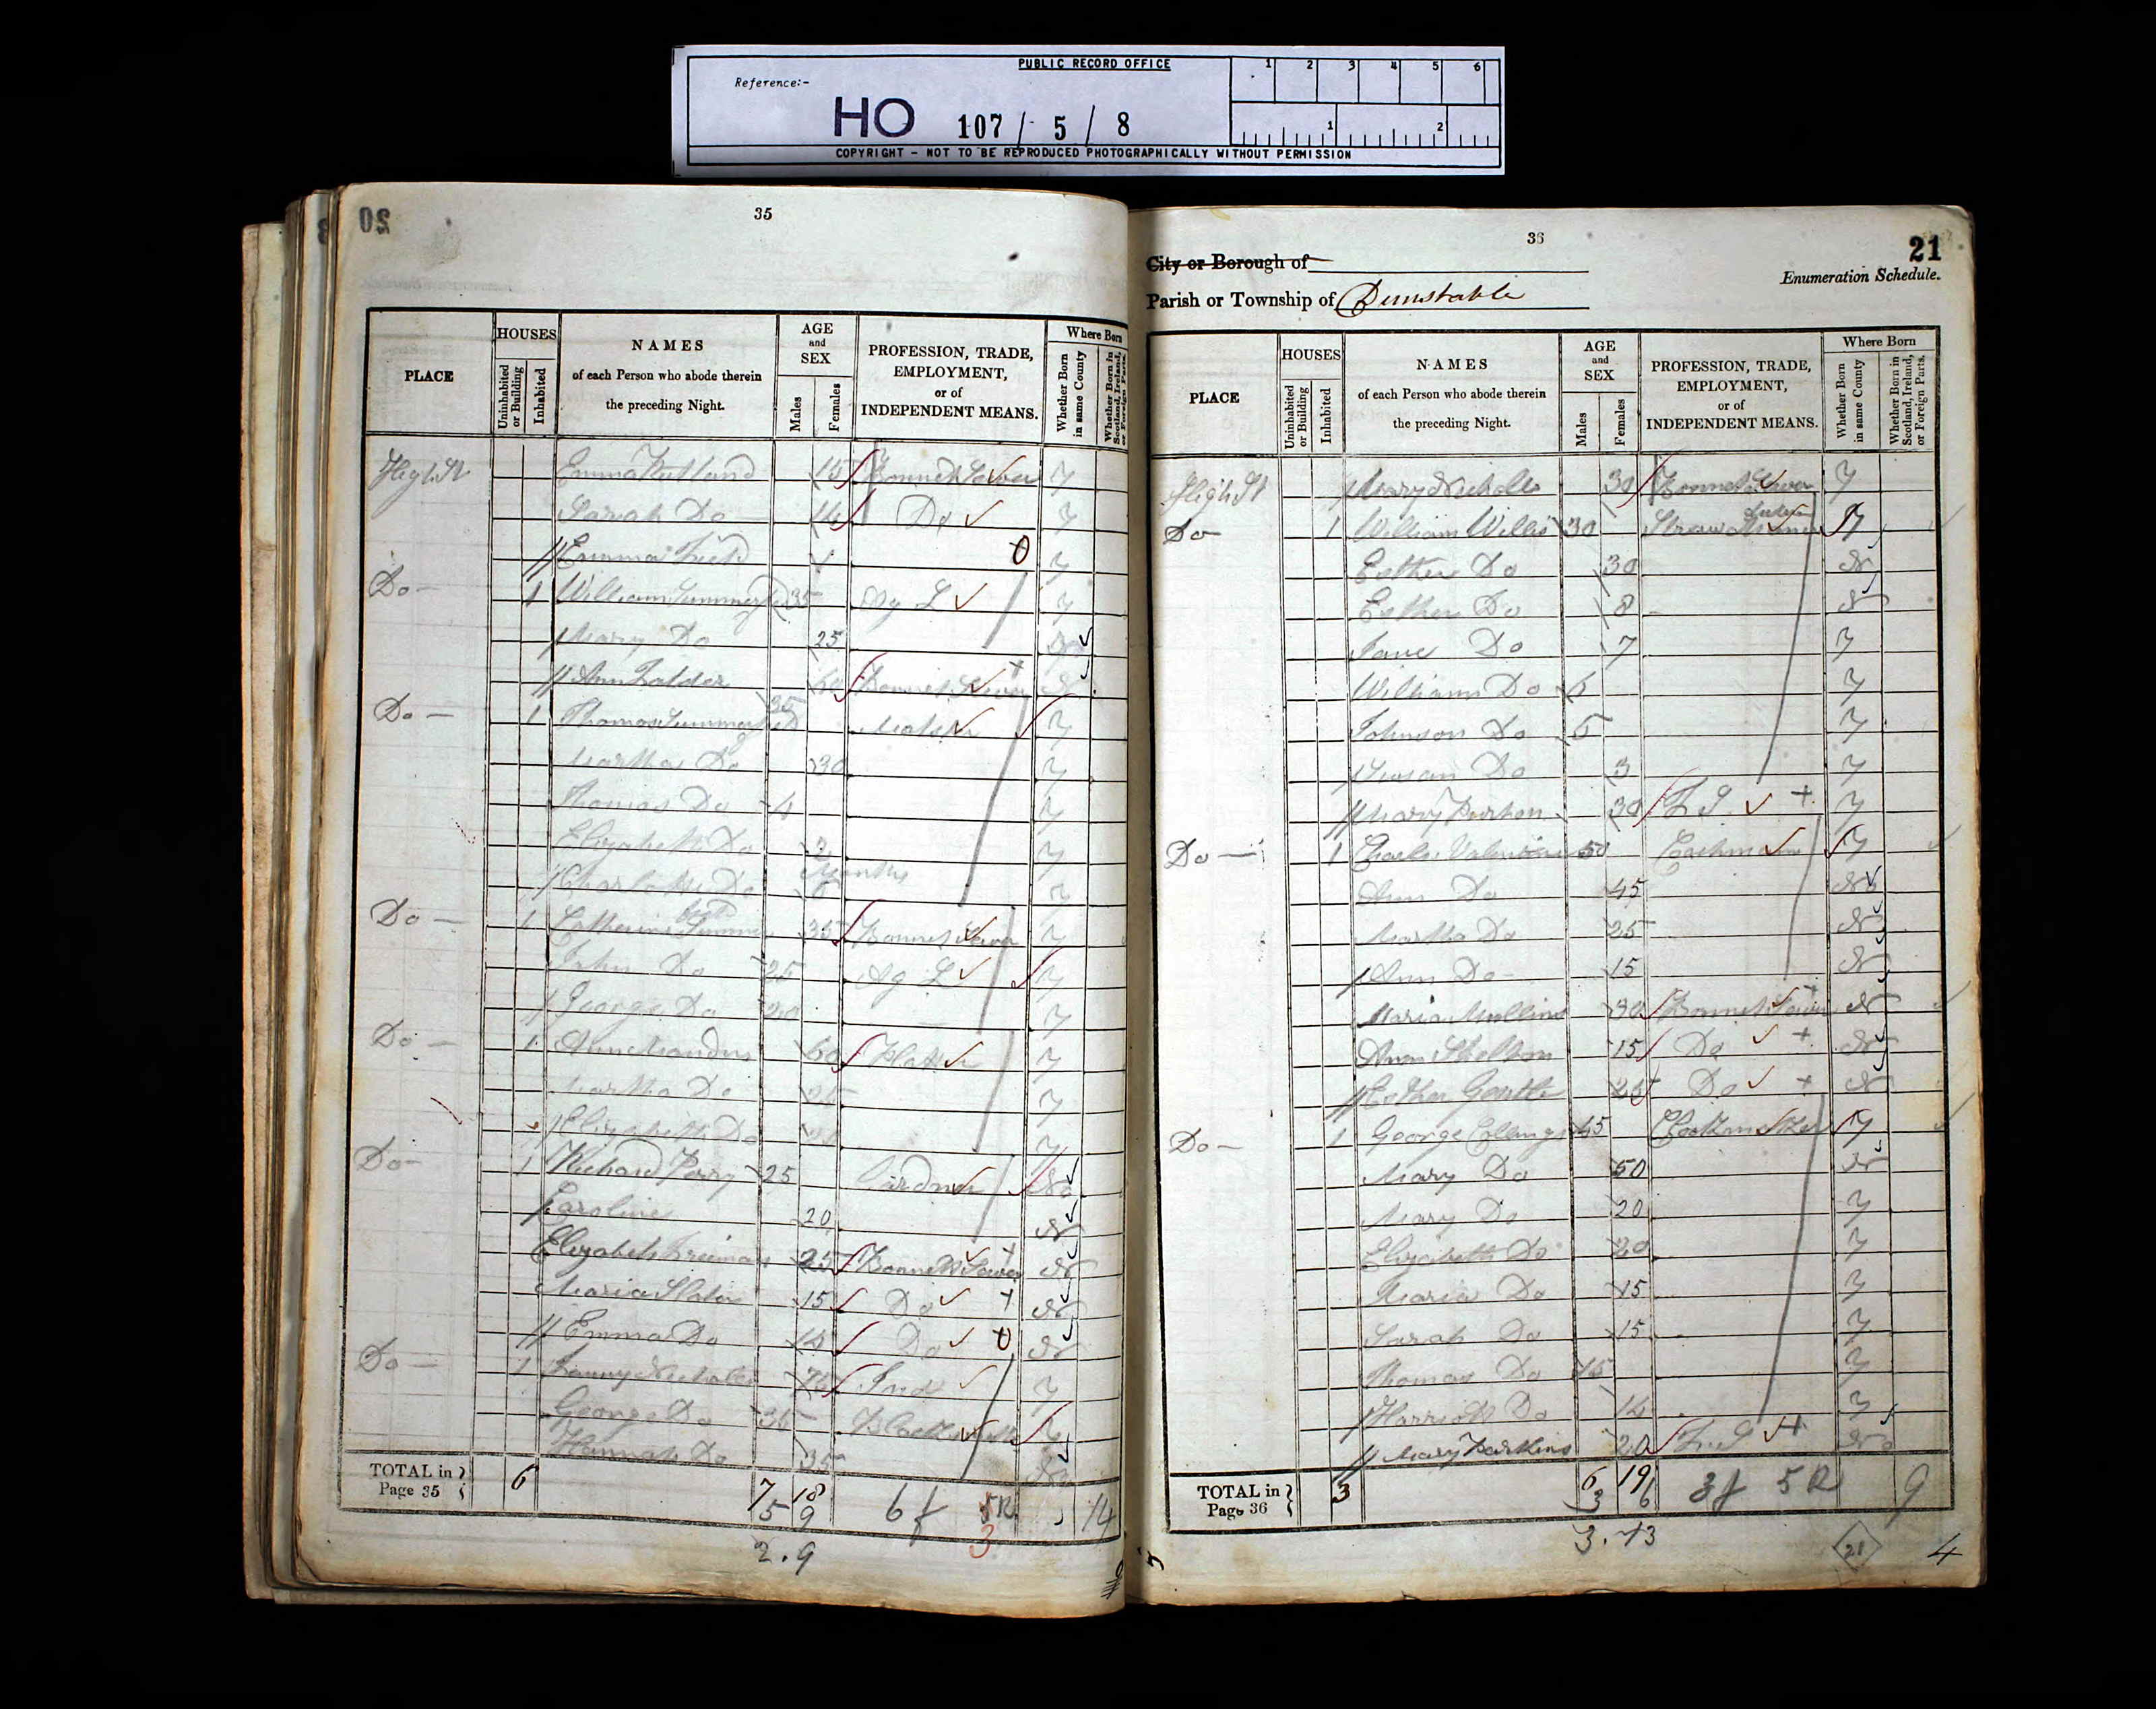 PUBLIC RECORD OFFICE
Reference:-
1 2 3 4 5 6
HO 107 / 5 / 8
1 2
COPYRIGHT - NOT TO BE REPRODUCED PHOTOGRAPHICALLY WITHOUT PERMISSION
35
PLACE
HOUSES
Uninhabited or Building
Inhabited
NAMES
of each Person who abode therein
the preceding Night.
AGE
and
SEX
Males
Females
PROFESSION, TRADE,
EMPLOYMENT,
or of
INDEPENDENT MEANS.
Where Born
Whether Born in same County
Whether Born in Scotland, Ireland, or Foreign Parts.
High St Emma Rutland 15 Bonnet Sewer Y
Sarah Do 14 Do Y
Emma 1 Y
Do 1 William 35 Ag L Y
Mary Do 25 No
Ann 60 Bonnet Sewer N
Do 1 Thomas 35 Y
Martha Do 30 Y
Thomas Do 4 Y
Elizabeth Do Y
Months
Charlotte Do Y
Do 1 Catherine 35 Bonnet Sewer Y
John Do 25 Ag L Y
George Do 20 Y
Do 1 Ann 60 Y
Martha Do 25 Y
Elizabeth Do 20 Y
Do 1 Richard Perry 25 Gardner No
Caroline 20 N
Elizabeth Freeman 25 Bonnet Sewer N
Maria Slater 15 Do N
Emma Do 14 Do N
Do 1 Fanny Nicholls Ind Y
George Do 35 Y
Hannah Do 35 No
TOTAL in Page 35 6 7 18 6 f 5R 14
5 9 3
2.9
36
21
City or Borough of
Enumeration Schedule.
Parish or Township of Dunstable
PLACE
HOUSES
Uninhabited or Building
Inhabited
NAMES
of each Person who abode therein
the preceding Night.
AGE
and
SEX
Males
Females
PROFESSION, TRADE,
EMPLOYMENT,
or of
INDEPENDENT MEANS.
Where Born
Whether Born in same County
Whether Born in Scotland, Ireland, or Foreign Parts.
High St Mary Nicholls 30 Bonnet Sewer Y
Do 1 William Willis 30 Straw Y
Esther Do 30 N
Esther Do 8 N
Jane Do 7 Y
William Do 6 Y
Johnson Do 5 Y
Susan Do 3 Y
Mary Burton 30 F S Y
Do 1 Charles 50 Y
Ann Do 45 No
Martha Do 25 N
Ann Do 15 N
Maria Mullins 30 Bonnet Sewer N
Ann Shelton 15 Do N
Esther Gentle 25 Do N
Do 1 George Collings 45 Y
Mary Do 50 N
Mary Do 20 Y
Elizabeth Do 20 Y
Maria Do 15 Y
Sarah Do 15 Y
Thomas Do 15 Y
Harriott Do 14 Y
Mary Perkins 20 F.S No
TOTAL in Page 36 3 6 19 3f 5R 9
3 6
3.13
21 4